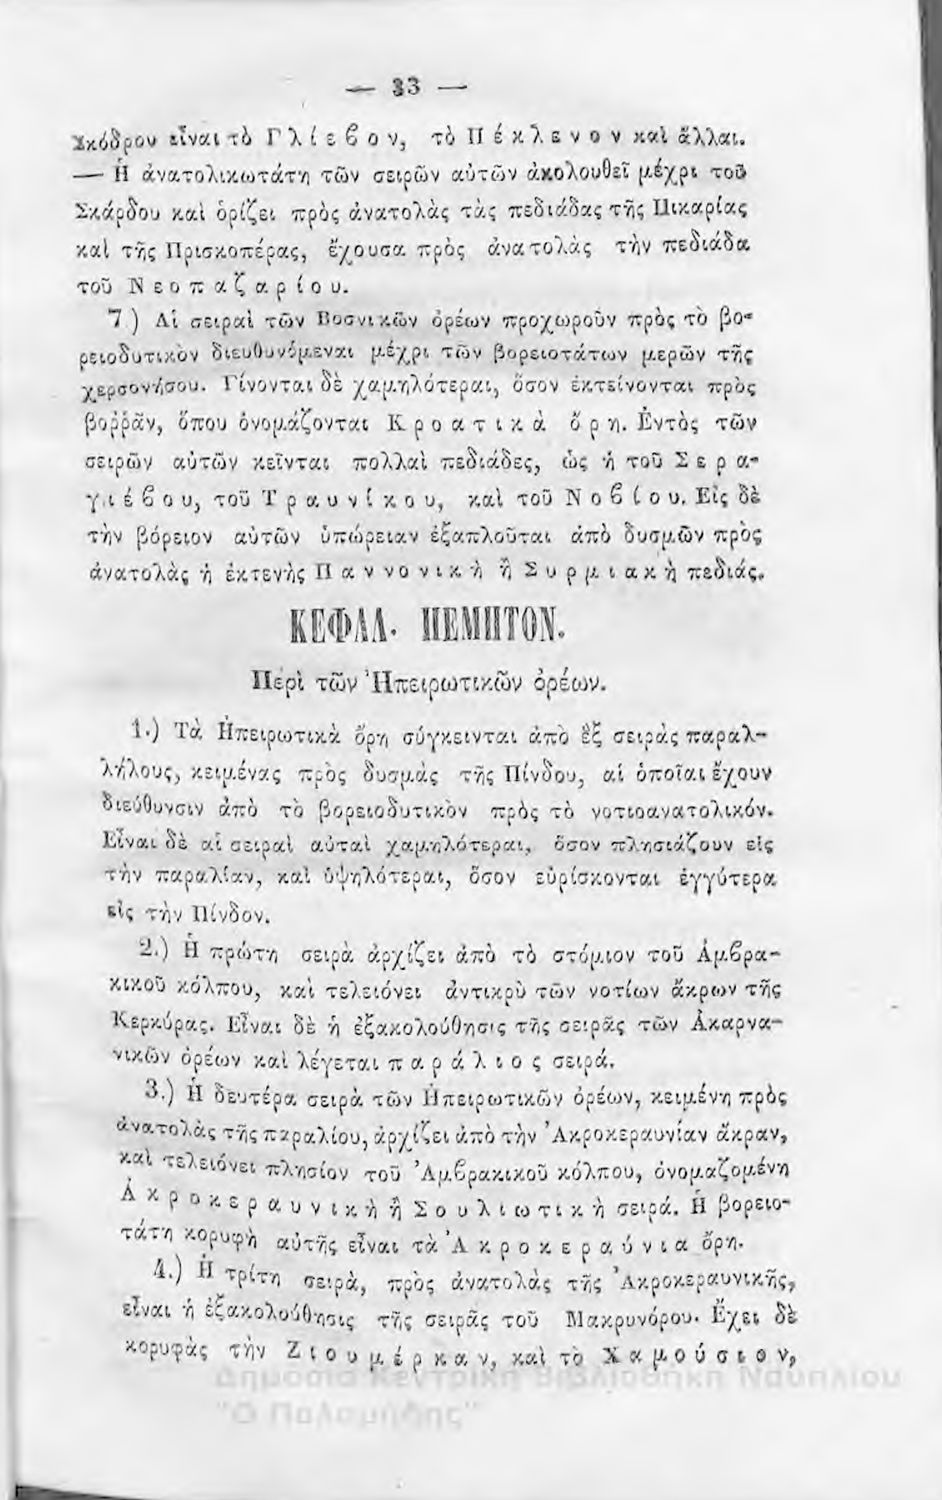 — 33 —
Σκόδρου εἶναι τὸ Γλίεβον, τὸ Πέκλενον καὶ ἄλλαι.
— Ἡ ἀνατολικωτάτη τῶν σειρῶν αὐτῶν ἀκολουθεῖ μέχρι τοῦ
Σκάρδου καὶ ὁρίζει πρὸς ἀνατολὰς τὰς πεδιάδας τῆς Πικαρίας
καὶ τῆς Πρισκοπέρας, ἔχουσα πρὸς ἀνατολὰς τὴν πεδιάδα
τοῦ Νεοπαζαρίου.
7) Αἱ σειραὶ τῶν Βοσνικῶν ὀρέων προχωροῦν πρὸς τὸ βο-
ρειοδυτικὸν διευθυνόμεναι μέχρι τῶν βορειοτάτων μερῶν τῆς
χερσονήσου. Γίνονται δὲ χαμηλότεραι, ὅσον ἐκτείνονται πρὸς
βοῤῥᾶν, ὅπου ὀνομάζονται Κροατικὰ ὄρη. Ἐντὸς τῶν
σειρῶν αὐτῶν κεῖνται πολλαὶ πεδιάδες, ὡς ἡ τοῦ Σερα-
γιέβου, τοῦ Τραυνίκου, καὶ τοῦ Νοβίου. Εἰς δὲ
τὴν βόρειον αὐτῶν ὑπώρειαν ἐξαπλοῦται ἀπὸ δυσμῶν πρὸς
ἀνατολὰς ἡ ἐκτενὴς Παννονικὴ ἢ Συρμιακὴ πεδιάς.
ΚΕΦΑΛ. ΠΕΜΠΤΟΝ.
Περὶ τῶν Ἠπειρωτικῶν ὀρέων.
1.) Τὰ Ἠπειρωτικὰ ὄρη σύγκεινται ἀπὸ ἓξ σειρὰς παραλ-
λήλους, κειμένας πρὸς δυσμὰς τῆς Πίνδου, αἱ ὁποῖαι ἔχουν
διεύθυνσιν ἀπὸ τὸ βορειοδυτικὸν πρὸς τὸ νοτιοανατολικόν.
Εἶναι δὲ αἱ σειραὶ αὐταὶ χαμηλότεραι, ὅσον πλησιάζουν εἰς
τὴν παραλίαν, καὶ ὑψηλότεραι, ὅσον εὑρίσκονται ἐγγύτερα
εἰς τὴν Πίνδον.
2.) Ἡ πρώτη σειρὰ ἀρχίζει ἀπὸ τὸ στόμιον τοῦ Ἀμβρα-
κικοῦ κόλπου, καὶ τελειόνει ἀντικρὺ τῶν νοτίων ἄκρων τῆς
Κερκύρας. Εἶναι δὲ ἡ ἐξακολούθησις τῆς σειρᾶς τῶν Ἀκαρνα-
νικῶν ὀρέων καὶ λέγεται παράλιος σειρά.
3.) Ἡ δευτέρα σειρὰ τῶν Ἠπειρωτικῶν ὀρέων, κειμένη πρὸς
ἀνατολὰς τῆς παραλίου, ἀρχίζει ἀπὸ τὴν Ἀκροκεραυνίαν ἄκραν,
καὶ τελειόνει πλησίον τοῦ Ἀμβρακικοῦ κόλπου, ὀνομαζομένη
Ἀκροκεραυνικὴ ἢ Σουλιωτικὴ σειρά. Ἡ βορειο-
τάτη κορυφὴ αὐτῆς εἶναι τὰ Ἀκροκεραύνια ὄρη.
4.) Ἡ τρίτη σειρὰ, πρὸς ἀνατολὰς τῆς Ἀκροκεραυνικῆς,
εἶναι ἡ ἐξακολούθησις τῆς σειρᾶς τοῦ Μακρυνόρου. Ἔχει δὲ
κορυφὰς τὴν Ζιουμέρκαν, καὶ τὸ Χαμούσιον,
Δημόσια Κεντρική Βιβλιοθήκη Ναυπλίου
"Ο Παλαμήδης"